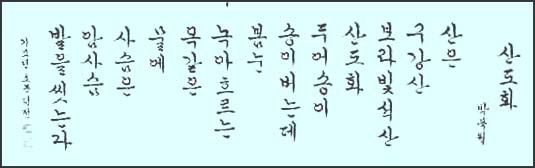 산도화
박목월
산은
구강산
보라빛 석산
산도화
두어 송이
송이 버는데
봄눈
녹아 흐르는
옥같은
물에
사슴은
암사슴
발을 씻는다